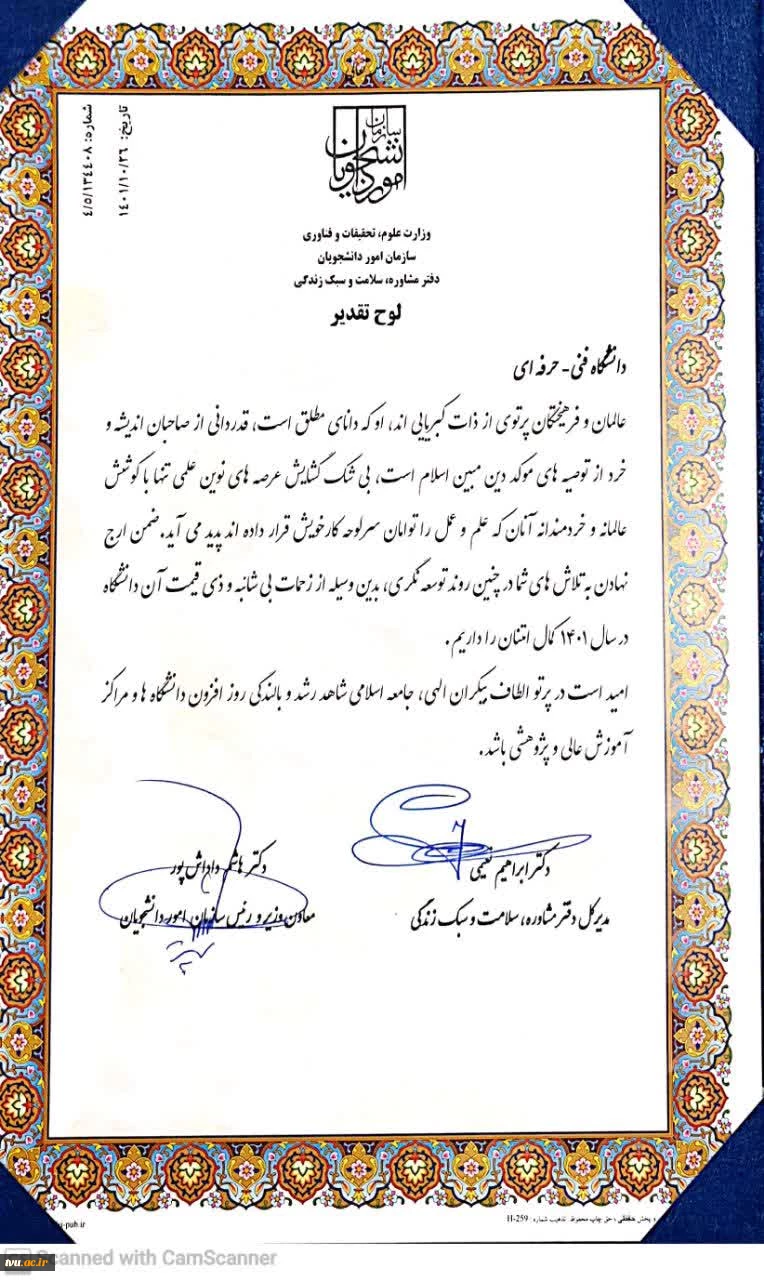 شماره: ۴/۵/۱۳۴۴۰۸
تاریخ: ۱۴۰۱/۱۰/۲۶
سازمان امور دانشجویان
وزارت علوم، تحقیقات و فناوری
سازمان امور دانشجویان
دفتر مشاوره، سلامت و سبک زندگی
لوح تقدیر
دانشگاه فنی- حرفه ای
عالمان و فرهیختگان پرتوی از ذات کبریایی اند، او که دانای مطلق است، قدردانی از صاحبان اندیشه و
خرد از توصیه های موکد دین مبین اسلام است، بی شک گشایش عرصه های نوین علمی تنها با کوشش
عالمانه و خردمندانه آنان که علم و عمل را توامان سرلوحه کار خویش قرار داده اند پدید می آید. ضمن ارج
نهادن به تلاش های شما در چنین روند توسعه نگری، بدین وسیله از زحمات بی شائبه و ذی قیمت آن دانشگاه
در سال ۱۴۰۱ کمال امتنان را داریم.
امید است در پرتو الطاف بیکران الهی، جامعه اسلامی شاهد رشد و بالندگی روز افزون دانشگاه ها و مراکز
آموزش عالی و پژوهشی باشد.
دکتر ابراهیم نعیمی
مدیرکل دفتر مشاوره، سلامت و سبک زندگی
دکتر هاشم داداش پور
معاون وزیر و رئیس سازمان امور دانشجویان
و پخش حقیقی : حق چاپ محفوظ. تذهیب شماره: H-259
-pub.ir
Scanned with CamScanner
tvu.ac.ir